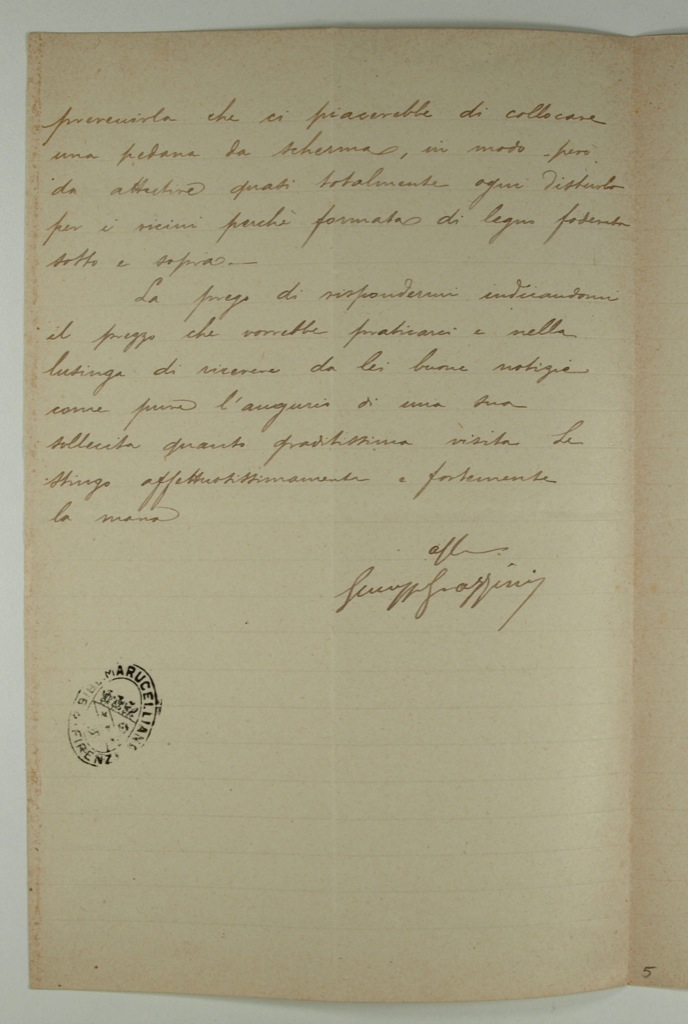 prevenirla che ci piacerebbe di collocare
una pedana da scherma, in modo però
da attutire quasi totalmente ogni disturbo
per i vicini perchè formata di legno foderata
sotto e sopra.—
La prego di rispondermi indicandomi
il prezzo che vorrebbe praticarci e nella
lusinga di ricevere da lei buone notizie
come pure l'augurio di una sua
sollecita quanto graditissima visita Le
stringo affettuosissimamente e fortemente
la mano
Giuseppe Grazzini
BIBL. MARUCELLIANA
FIRENZE
5